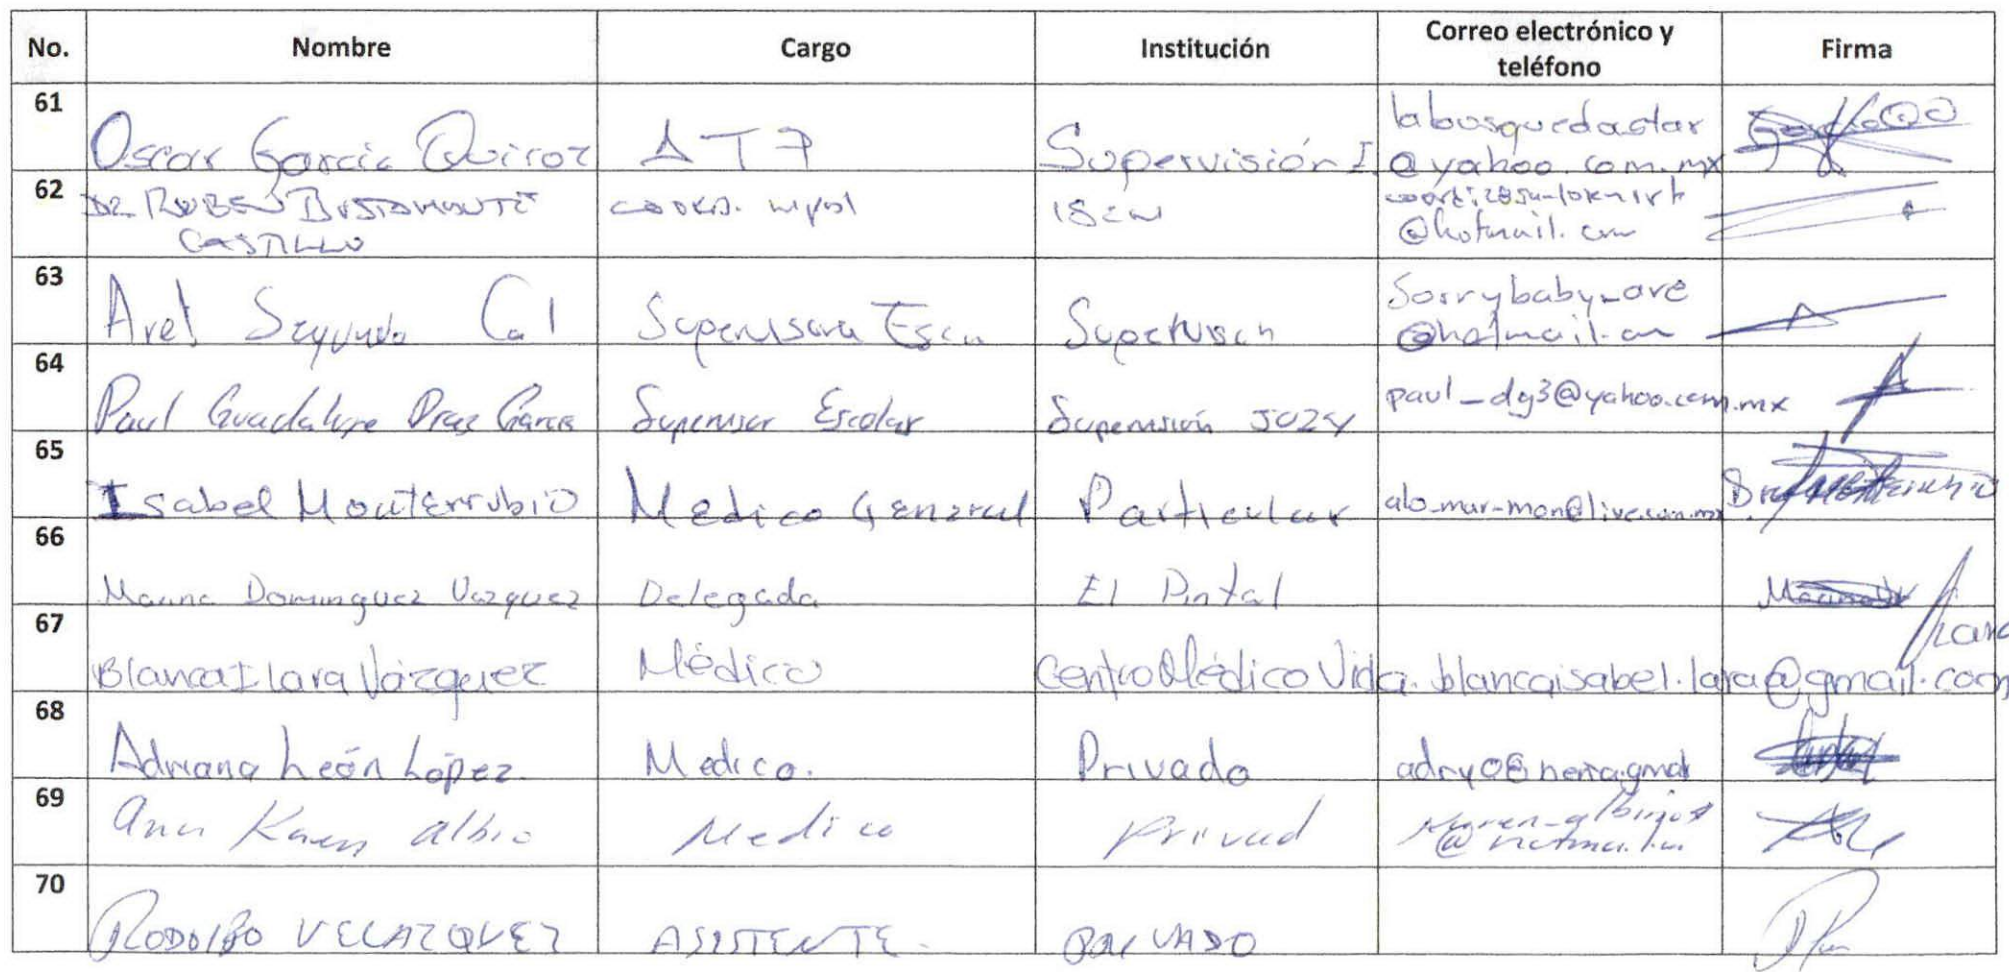 No. Nombre Cargo Institución Correo electrónico y teléfono Firma
61 Oscar García Quiroz ATP Supervisión I. labusquedastar @yahoo.com.mx
62 DR. RUBEN BUSTAMANTE CASTILLO COORD. @hotmail.com
63 Segundo Supervisora Supervisión Sorrybaby_are @hotmail.com
64 Paul Guadalupe Díaz García Supervisor Escolar Supervisión J024 paul_dg3@yahoo.com.mx
65 Isabel Monterrubio Medico General Particular alo_mar_mon@live.com.mx
66 Domínguez Vazquez Delegada El
67 Blanca I Lara Vázquez Médico Centro Médico Vida. blancaisabel.lara@gmail.com
68 Adriana León López. Medico. Privado
69 Ana Karen Medico Privad
70 RODOLFO VELAZQUEZ ASISTENTE. PRIVADO